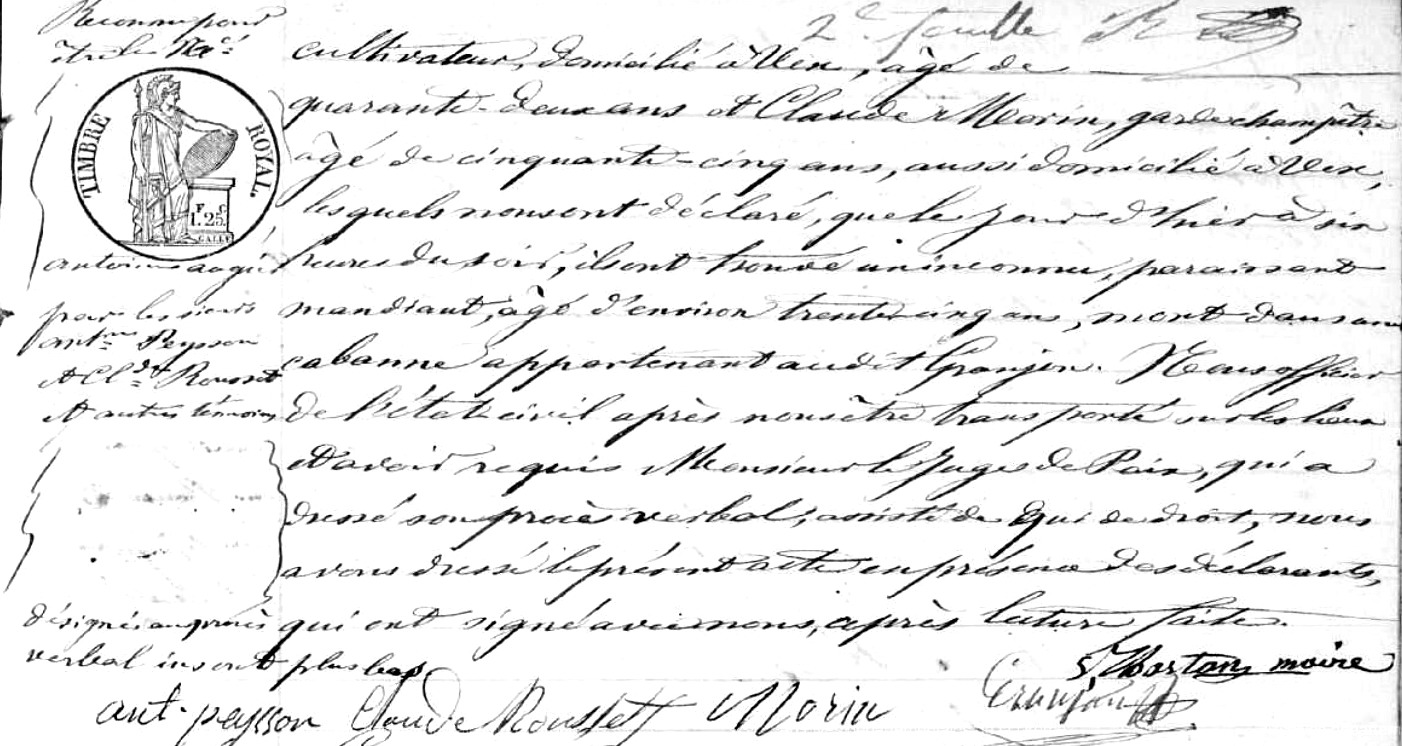 2e feuille
cultivateur, domicilié à Vex, âgé de
quarante-deux ans et Claude Morin, garde champêtre
âgé de cinquante-cinq ans, aussi domicilié à Vex,
lesquels nous ont déclaré, que le jour d'hier à six
heures du soir, ils ont trouvé un inconnu, paraissant
mandiant, âgé d'environ trente cinq ans, mort dans une
cabanne appartenant audit Granjon. Nous officier
de l'état civil après nous être transporté sur les lieux
et avoir requis Monsieur le Juge de Paix, qui a
dressé son procès verbal, assisté de qui de droit, nous
avons dressé le présent acte en présence des déclarants,
qui ont signé avec nous, après lecture faite.
Reconnu pour
être le Né
TIMBRE ROYAL.
F. C.
1.25.
GALLE
antoine augier
par les sieurs
antne Peysson
et Clde Rousset
et autres témoins
désignés au procès
verbal inscrit plus bas
Mortan, maire
ant. peysson Claude Rousset Morin Granjon